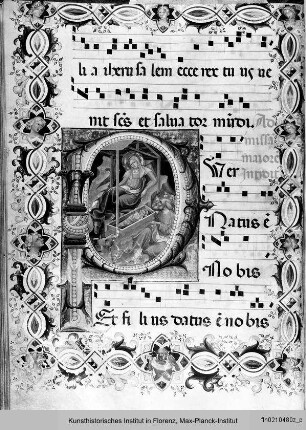 li a iherusalem ecce rex tu us ue
nit scs et salua tor mūdi.
P uer
Natus ē
No bis
Et fi li us datus ē no bis
Kunsthistorisches Institut in Florenz, Max-Planck-Institut